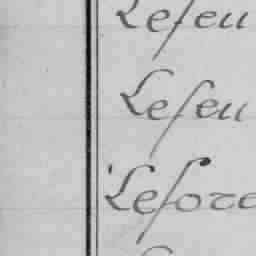 Lefeu
Lefeu
Lefore